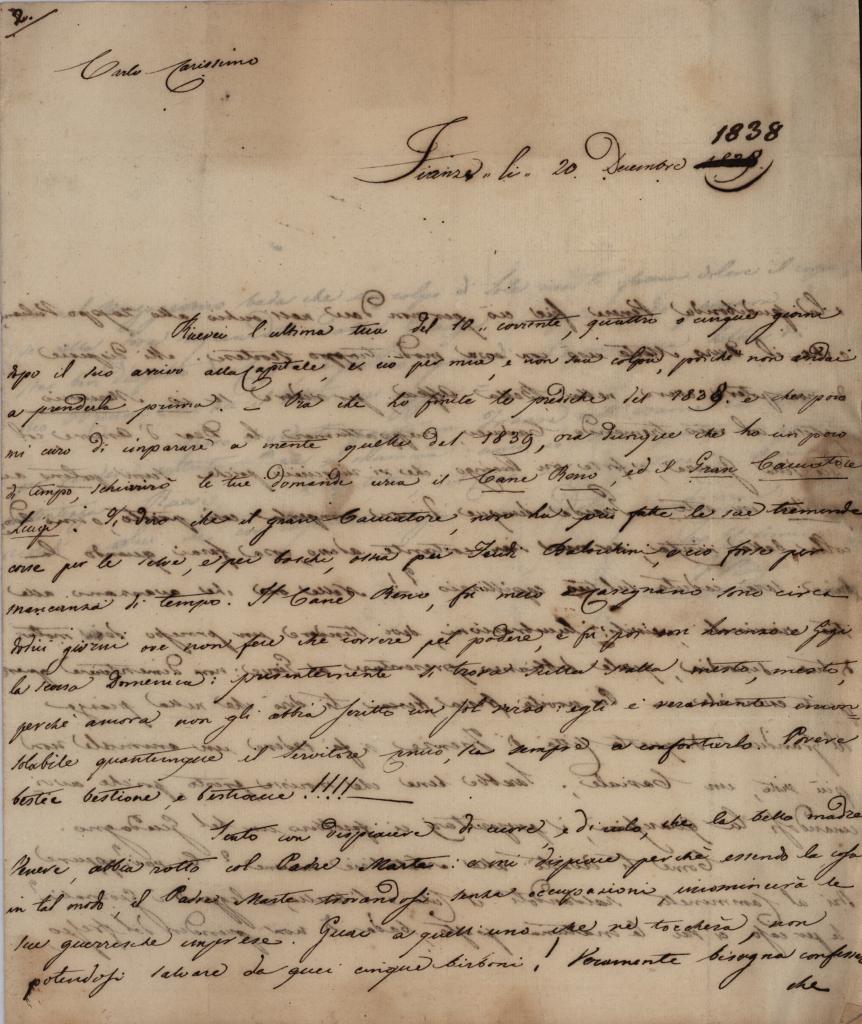 2.
Carlo Carissimo
1838
Firenze li 20 Decembre 1838.
Ricevei l'ultima tua del 10.. corrente, quattro o cinque giorni
dopo il suo arrivo alla Capitale, e ciò per mia, e non sua colpa, poichè non andai
a prenderla prima. _ Ora che ho finite le prediche del 1838. e che poco
mi curo di imparare a mente quelle del 1839, ora dunque che ho un poco
di tempo, schiarirò le tue domande circa il Cane Reno, ed il Gran Cacciatore
Luigi. Ti dirò che il gran Cacciatore, non ha più fatte le sue tremende
corse per le selve, e per boschi, ossia pei e ciò forse per
mancanza di tempo. Il Cane Reno, fu meco a Carignano sono circa
dodici giorni ove non fece che correre pel podere, e fu poi con Lorenzo e Gigi
la scorsa Domenica: presentemente si trova nella stalla mesto, mesto,
perchè ancora non gli abbia scritto un sol verso: egli è veramente incon=
solabile quantunque il Servitore mio, sia sempre a confortarlo. Povere
bestie bestione, e bestiacce!!!!!
Sento con dispiacere di cuore, e di culo, che la bella madre
Venere, abbia rotto col Padre Marte: e mi dispiace perchè essendo la cosa
in tal modo, il Padre Marte trovandosi senza occupazioni incomincierà le
sue guerresche imprese. Guai a quell'uno che ne toccherà, non
potendosi salvare da quei cinque birboni! Veramente bisogna confessare
che